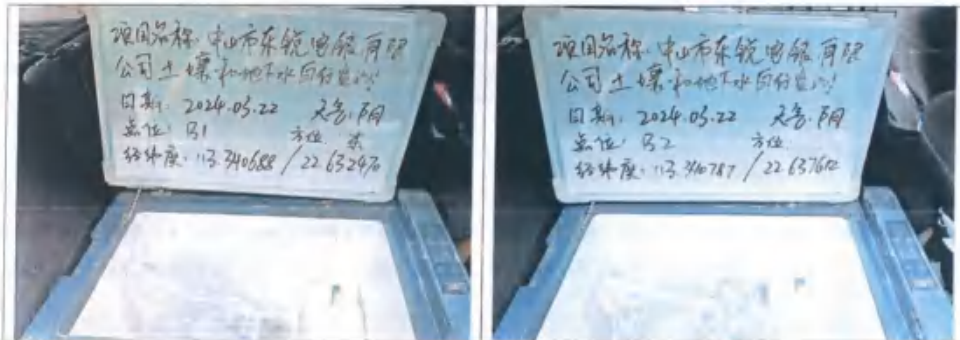 项目名称：中山市东锐电镀有限
公司土壤和地下水自行监测
日期：2024.03.22 天气：阴
点位：B1 方位：东
经纬度：113.340688 / 22.632470
项目名称：中山市东锐电镀有限
公司土壤和地下水自行监测
日期：2024.03.22 天气：阴
点位：B2 方位
经纬度：113.340787 / 22.637612